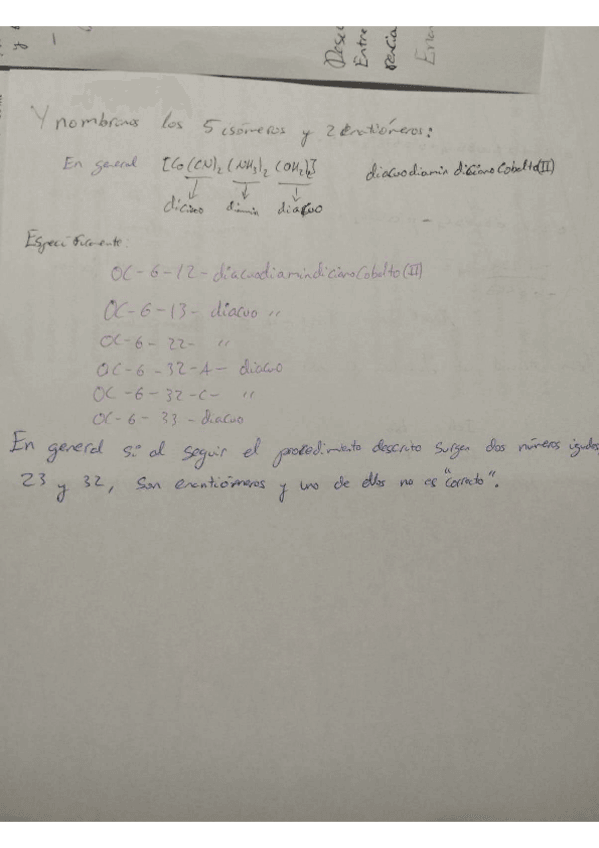 Entre
Y nombramos los 5 isómeros y 2 enantiómeros:
En general [Co(CN)₂(NH₃)₂(OH₂)₂] diacuodiamindicianoCobalto(II)
↓ ↓ ↓
diciano diamin diacuo
Específicamente:
OC-6-12-diacuodiamindicianoCobalto(II)
OC-6-13- diacuo "
OC-6-22- "
OC-6-32-A- diacuo
OC-6-32-C- "
OC-6-33-diacuo
En general si al seguir el procedimiento descrito surgen dos números iguales
23 y 32, son enantiómeros y uno de ellos no es "correcto".